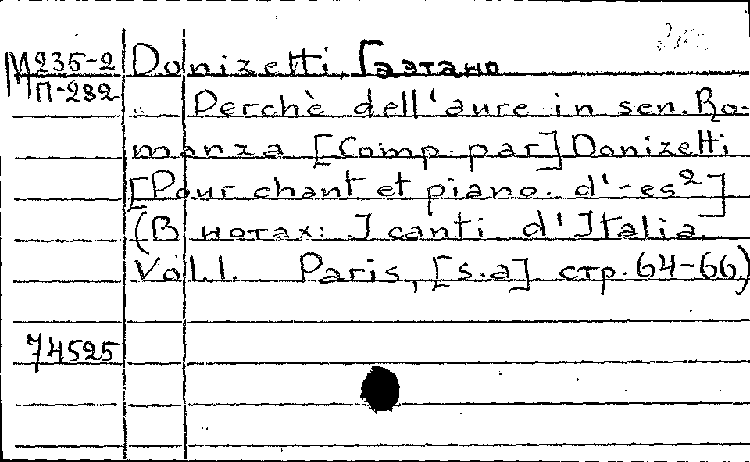 М235-2 Donizetti, Гаэтано
П-282 Perchè dell'aure in sen. Ro-
manza [Comp. par] Donizetti.
[Pour chant et piano. d'-es²]
(В нотах: I canti d'Italia.
Vol. 1. Paris, [s.a] стр. 64-66)
74525